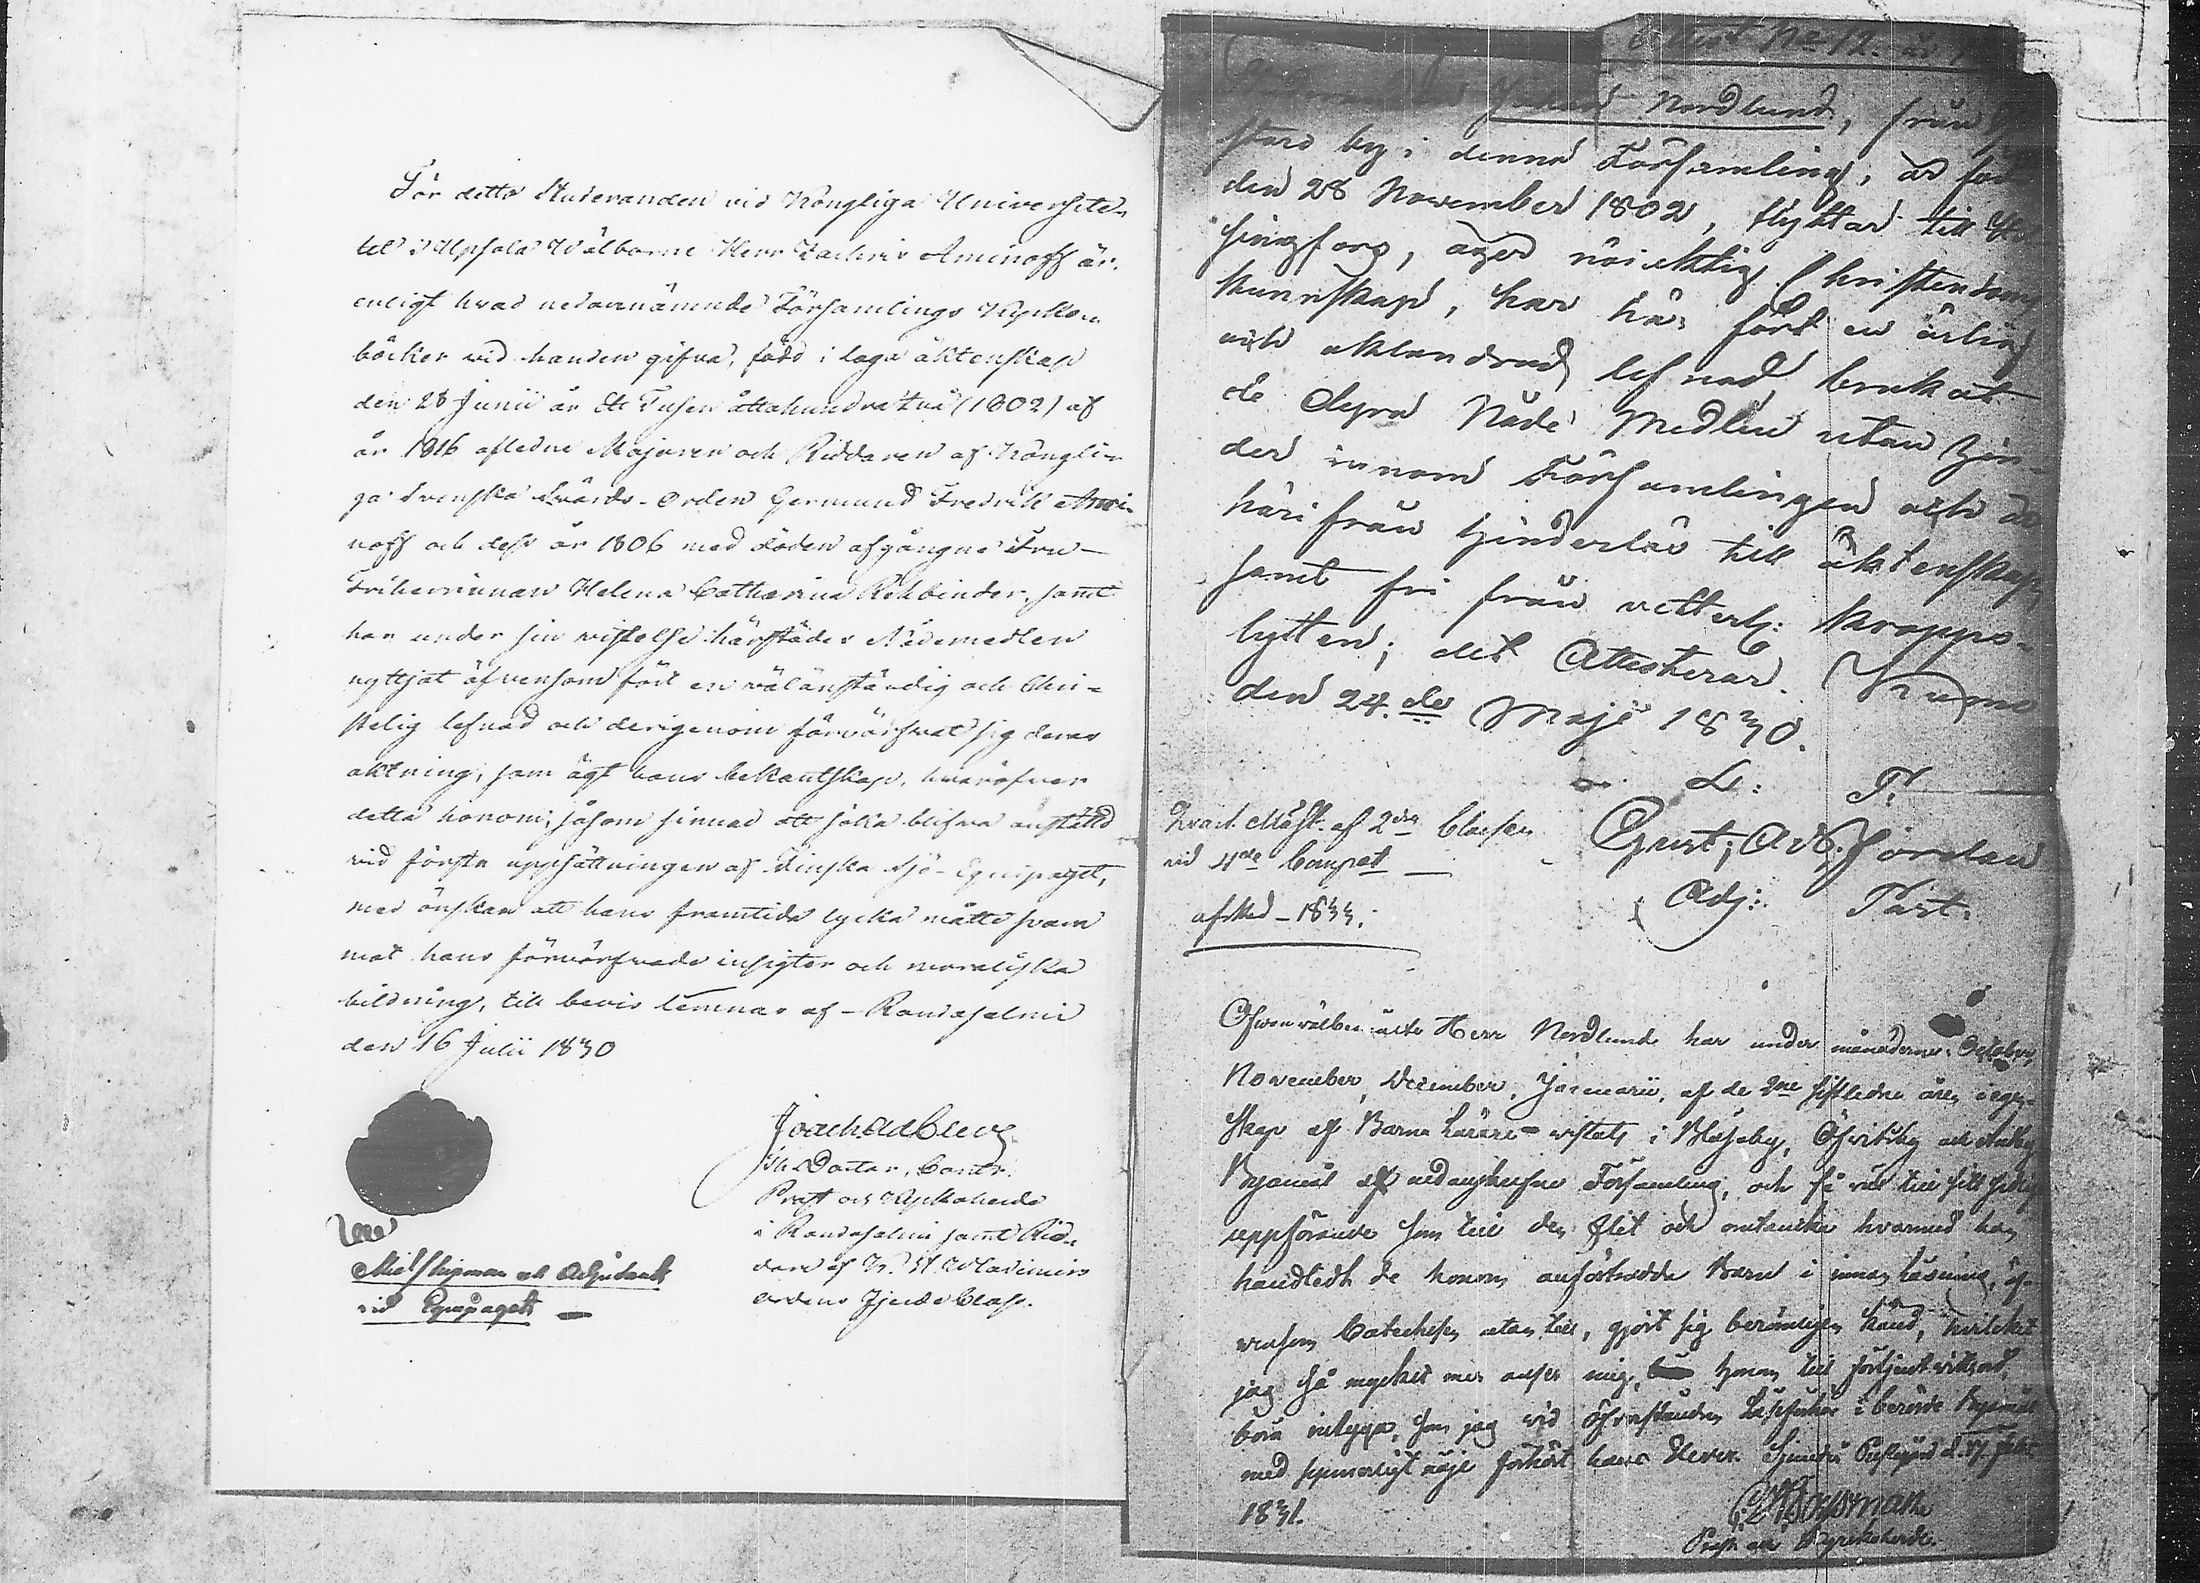 För detta Studeranden vid Kongliga Universite-
tet i Upsala Wälborne Herr Zachris Aminoff är,
enligt hvad nedannämnde Församlings Kyrko-
böcker vid handen gifva, född i laga äktenskap
den 28 Junii år Ett Tusen åttahundra två (1802) af
år 1816 afledne Majoren och Riddaren af Kongli-
ga Svenska Svärds-Orden Germund Fredrik Ami-
noff och dess år 1806 med döden afgångne Fru
Friherrinnan Helena Catharina Rehbinder, samt
har under sin vistelse härstädes Nådemedlen
nyttjat äfvensom fört en välanständig och Chri-
stelig lefnad och derigenom förvärfvat sig deras
aktning, som ägt hans bekantskap, hvaröfver
detta honom, såsom sinnad att söka blifva anställd
vid första uppsättningen af Finska Sjö-Equipaget,
med önskan att hans framtida lycka måtte svara
mot hans förvärfvade insigter och moraliska
bildning, till bevis lemnas af - Randasalmi
den 16 Julii 1830
Joach. Ad Cleve
Th. Doctor, Contr.
Prost och Kyrkoherde
i Randasalmi samt Rid-
dare af K. St. Wladimirs
Ordens Fjerde Class.
Midshipman och Adjutant
vid Equipaget
Attest No 12.
Nordlund, från
by i denna Församling, är född
den 28 November 1802, flyttar till Hel-
singfors, äger riktig Christendoms
kunnskap, har här fört en ärlig
och oklandrad lefnad brukat
de dyra Nåde Medlen utan hin-
der innom Församlingen och är
härifrån hinderlös till äktenskap,
samt fri från vetterl: kropps-
lytten; det Attesterar.
den 24.de Maji 1830.
L: T.
Gust; Ad. 
Adj: Past.
Qvart. Mäst. af 2dra Classen
vid 4de Comp:t
afsked - 1833.
Ofvanvälbemälte Herr Nordlund har under månaderne October,
November, December, Januarii, af de 2ne sistledne åren i egen-
skap af Barna Lärare vistats i
af nedanskrefne Församling, och så väl till sitt
uppförande som till den flit och omtanka hvarmed han
handledt de honom anförtrodda Barn i innan läsning, äf-
vensom Catechesen utan till, gjort sig berömligen känd, hvilket
jag så mycket mer anser mig honom till förtjent vitsord,
böra intyga, som jag vid i berörde
med synnerligt nöje förhört hans Elever.
1831.
Prost och Kyrkoherde.